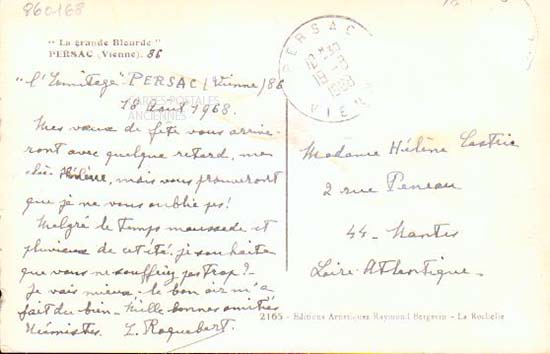 860168
" La grande Blourde " 86
PERSAC (Vienne).
"l'Ermitage" PERSAC (Vienne) 86
18 Août 1968.
CARTES POSTALES
ANCIENNES
Mes vœux de fête vous arrive-
ront avec quelque retard, ma
chère Hélène, mais vous prouveront
que je ne vous oublie pas!
Malgré le temps maussade et
pluvieux de cet été, je souhaite
que vous ne souffriez pas trop?-
Je vais mieux - le bon air m'a
fait du bien - Mille bonnes amitiés
L. Roquebert.
PERSAC
VIENNE
Madame Hélène
2 rue
44 - Nantes
Loire-Atlantique -
2165 - Editions Artistiques Raymond Bergevin - La Rochelle